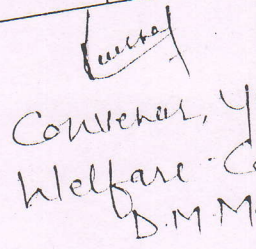 Convener, Y
Welfare. C
D.M.M